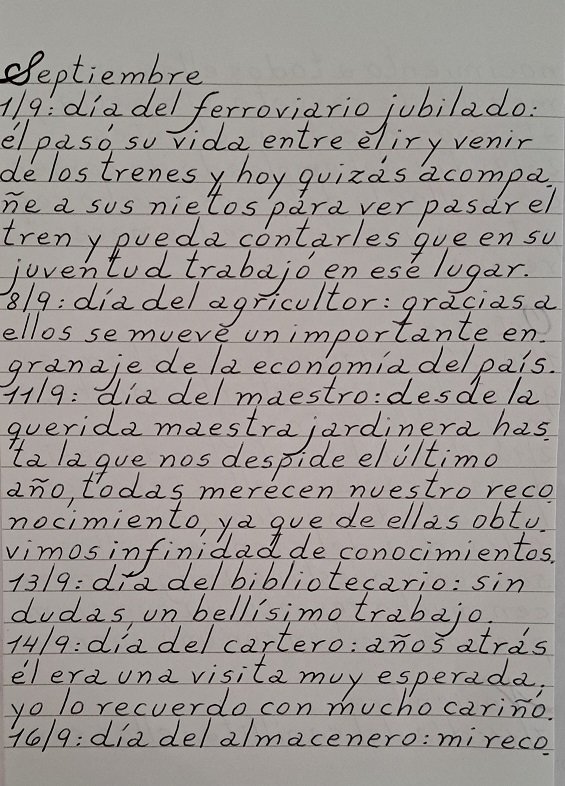 Septiembre
1/9: día del ferroviario jubilado:
él pasó su vida entre el ir y venir
de los trenes y hoy quizás acompa_
ñe a sus nietos para ver pasar el
tren y pueda contarles que en su
juventud trabajó en ese lugar.
8/9: día del agricultor: gracias a
ellos se mueve un importante en_
granaje de la economía del país.
11/9: día del maestro: desde la
querida maestra jardinera has_
ta la que nos despide el último
año, todas merecen nuestro reco_
nocimiento, ya que de ellas obtu_
vimos infinidad de conocimientos.
13/9: día del bibliotecario: sin
dudas, un bellísimo trabajo.
14/9: día del cartero: años atrás
él era una visita muy esperada;
yo lo recuerdo con mucho cariño.
16/9: día del almacenero: mi reco_